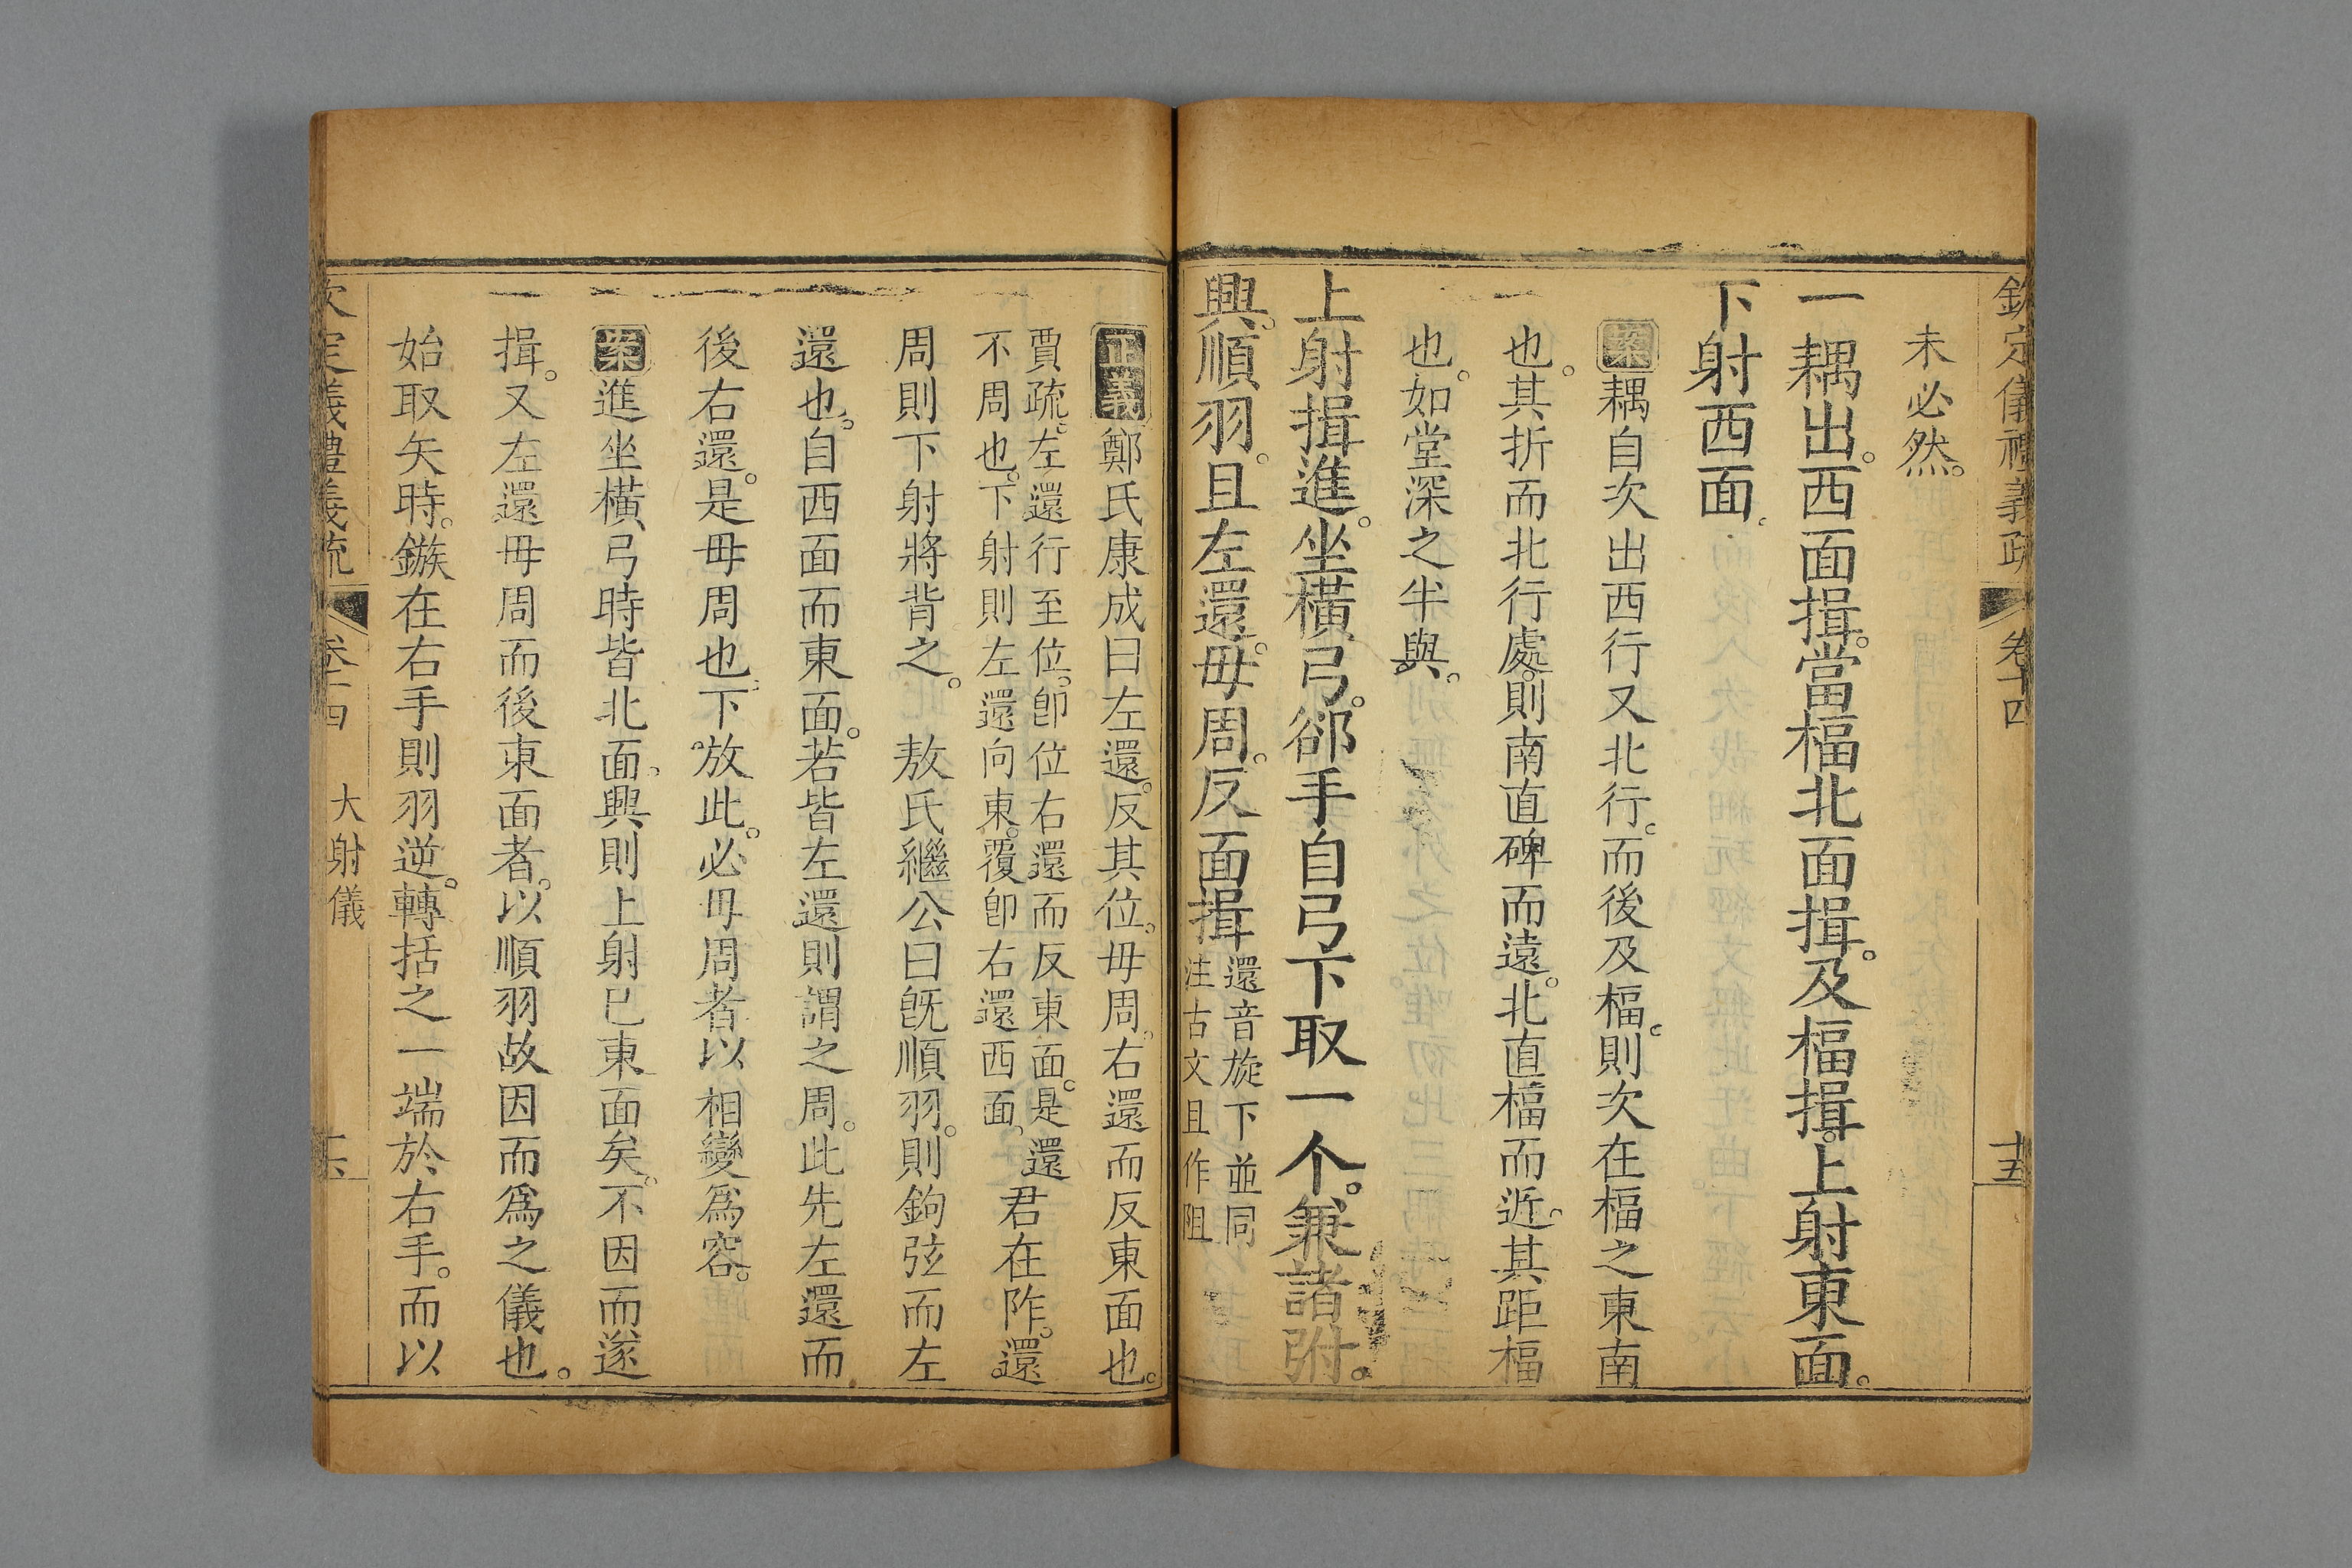 欽定儀禮義疏 卷十四 十五
未必然。
一耦出。西面揖。當楅北面揖。及楅揖。上射東面。
下射西面。
案耦自次出西行又北行。而後及楅。則次在楅之東南
也。其折而北行處。則南直碑而遠。北直楅而近。其距楅
也。如堂深之半與。
上射揖進。坐橫弓。卻手自弓下取一个。兼諸弣。
興。順羽。且左還。毋周。反面揖還音旋下並同
注古文且作阻
正義鄭氏康成曰左還。反其位。毋周。右還而反東面也。
賈疏。左還行至位。卽位右還而反東面。是還
不周也。下射則左還向東。覆卽右還西面、君在阼。還
周則下射將背之。 敖氏繼公曰旣順羽。則鉤弦而左
還也。自西面而東面。若皆左還則謂之周。此先左還而
後右還。是毋周也。下放此。必毋周者以相變爲容。
案進坐橫弓時皆北面。興則上射已東面矣。不因而遂
揖。又左還毋周而後東面者。以順羽故因而爲之儀也。
始取矢時。鏃在右手則羽逆。轉括之一端於右手。而以
欽定儀禮義疏 卷十四 大射儀